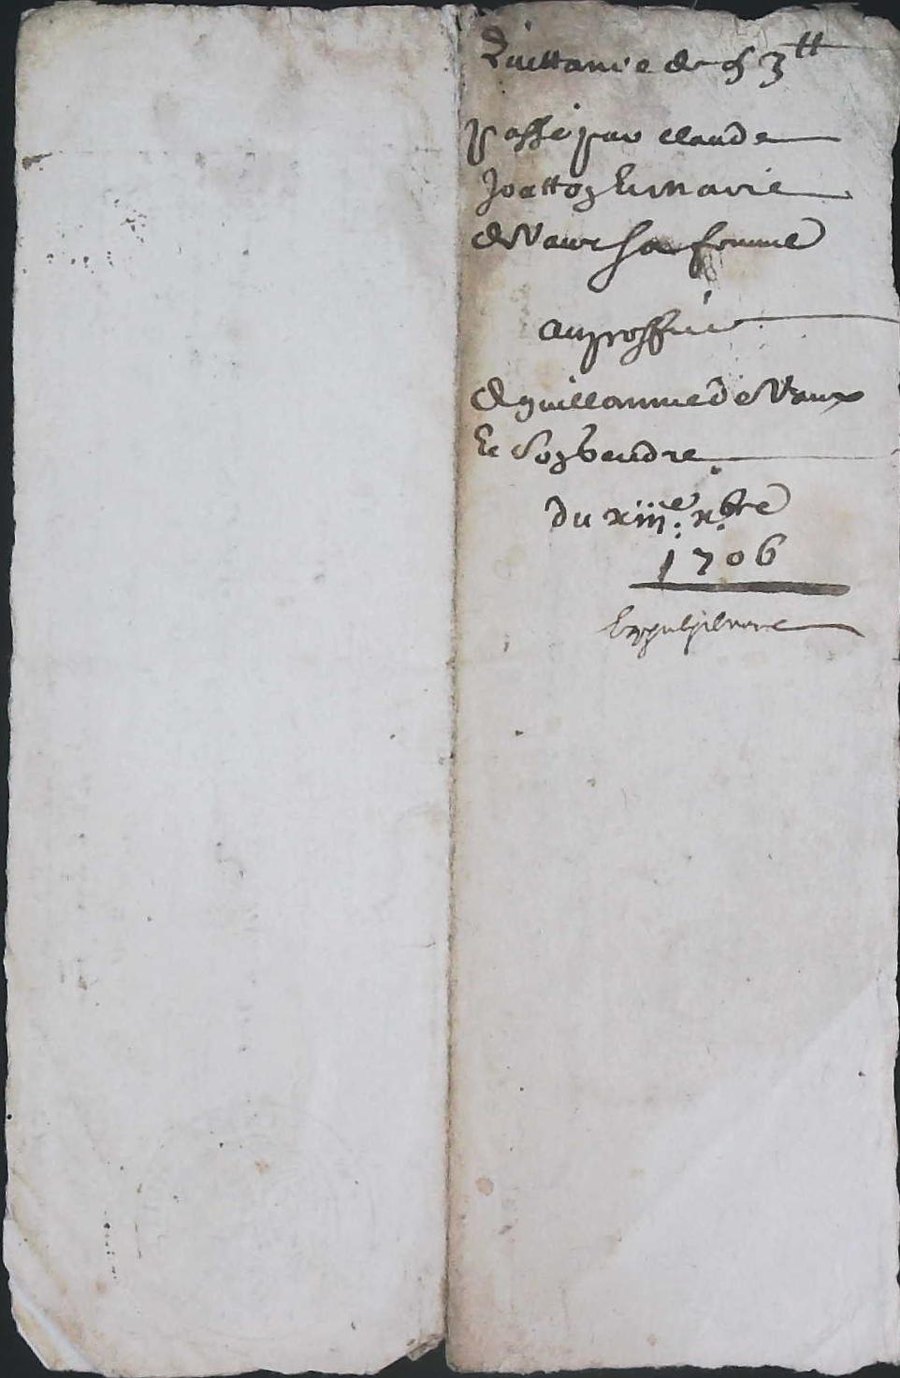 Quittance de 53tt
passé par claude
Joatton Et marie
de Vaux sa femme
au proffict
de guillaume de Vaux
Et son gendre
du xiiie xbre
1706